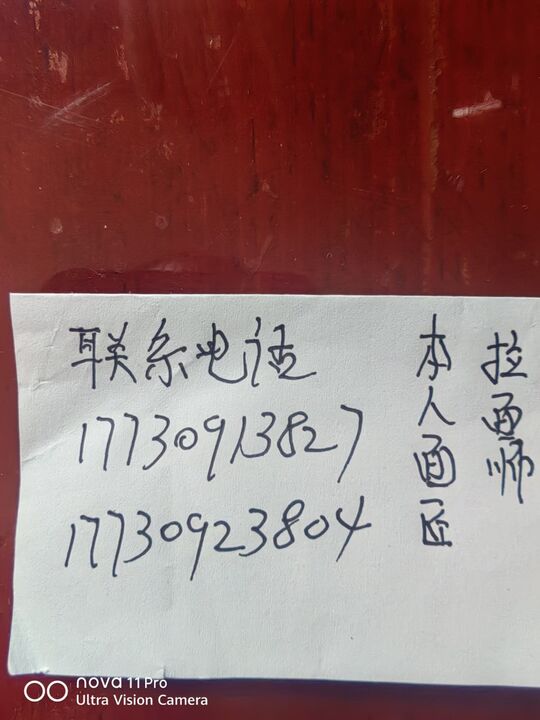 联系电话
17730913827
17730923804
拉面师
本人面匠
nova 11 Pro
Ultra Vision Camera